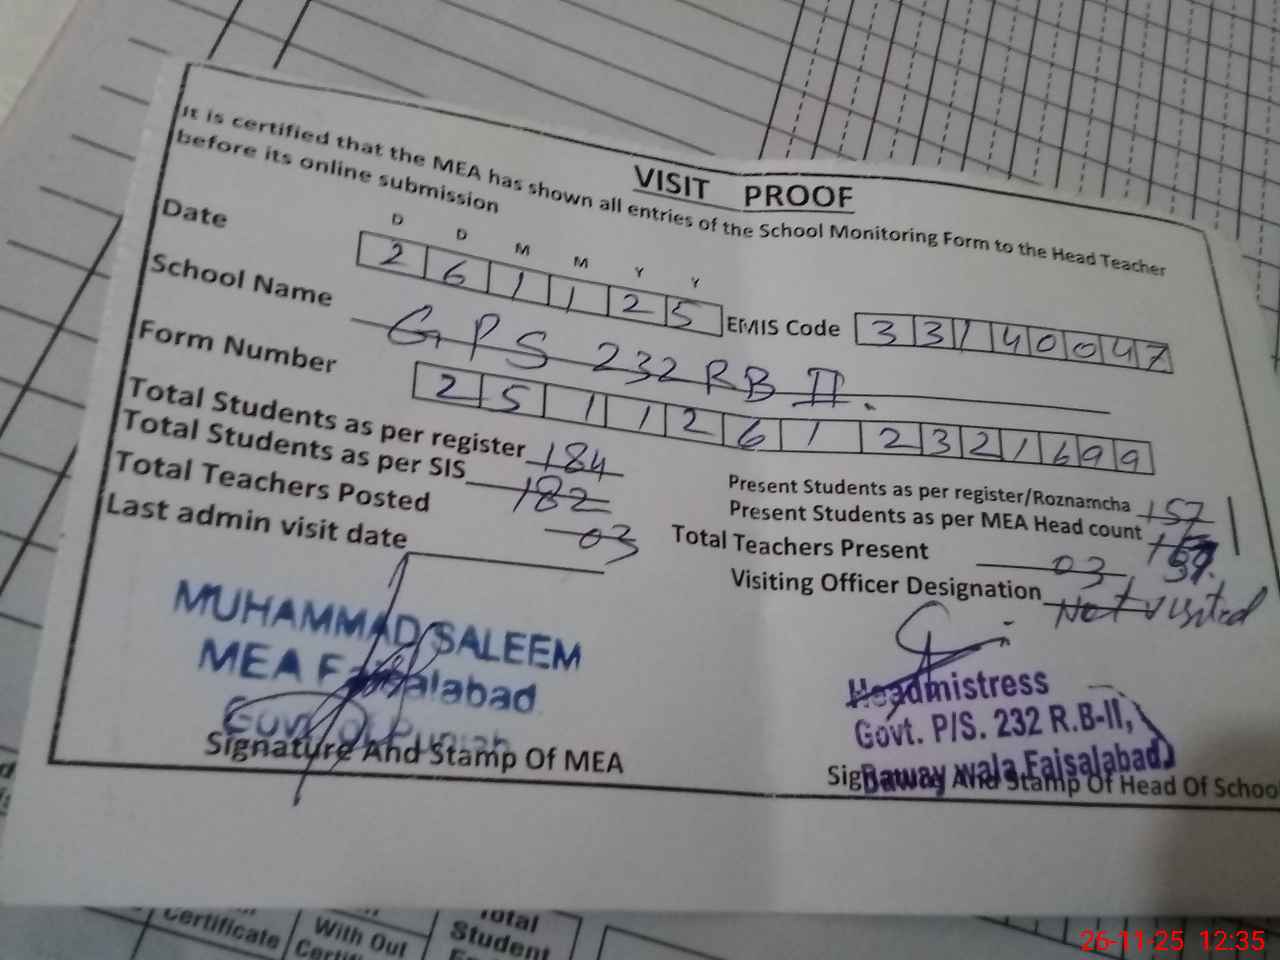 VISIT PROOF
It is certified that the MEA has shown all entries of the School Monitoring Form to the Head Teacher
before its online submission
D D M M Y Y
Date 2 6 1 1 2 5 EMIS Code 3 3 1 4 0 0 4 7
School Name GPS 232 RB II.
Form Number 2 5 1 1 2 6 1 2 3 2 1 6 9 9
Total Students as per register 184
Total Students as per SIS 182
Total Teachers Posted 03
Last admin visit date
Present Students as per register/Roznamcha 157
Present Students as per MEA Head count
Total Teachers Present 03
Visiting Officer Designation Not visited
MUHAMMAD SALEEM
MEA Faisalabad
Govt Of Punjab
Signature And Stamp Of MEA
Headmistress
Govt. P/S. 232 R.B-II,
Baway wala Faisalabad
Signature And Stamp Of Head Of Schoo
Certificate
With Out
Total
Student
26-11-25 12:35